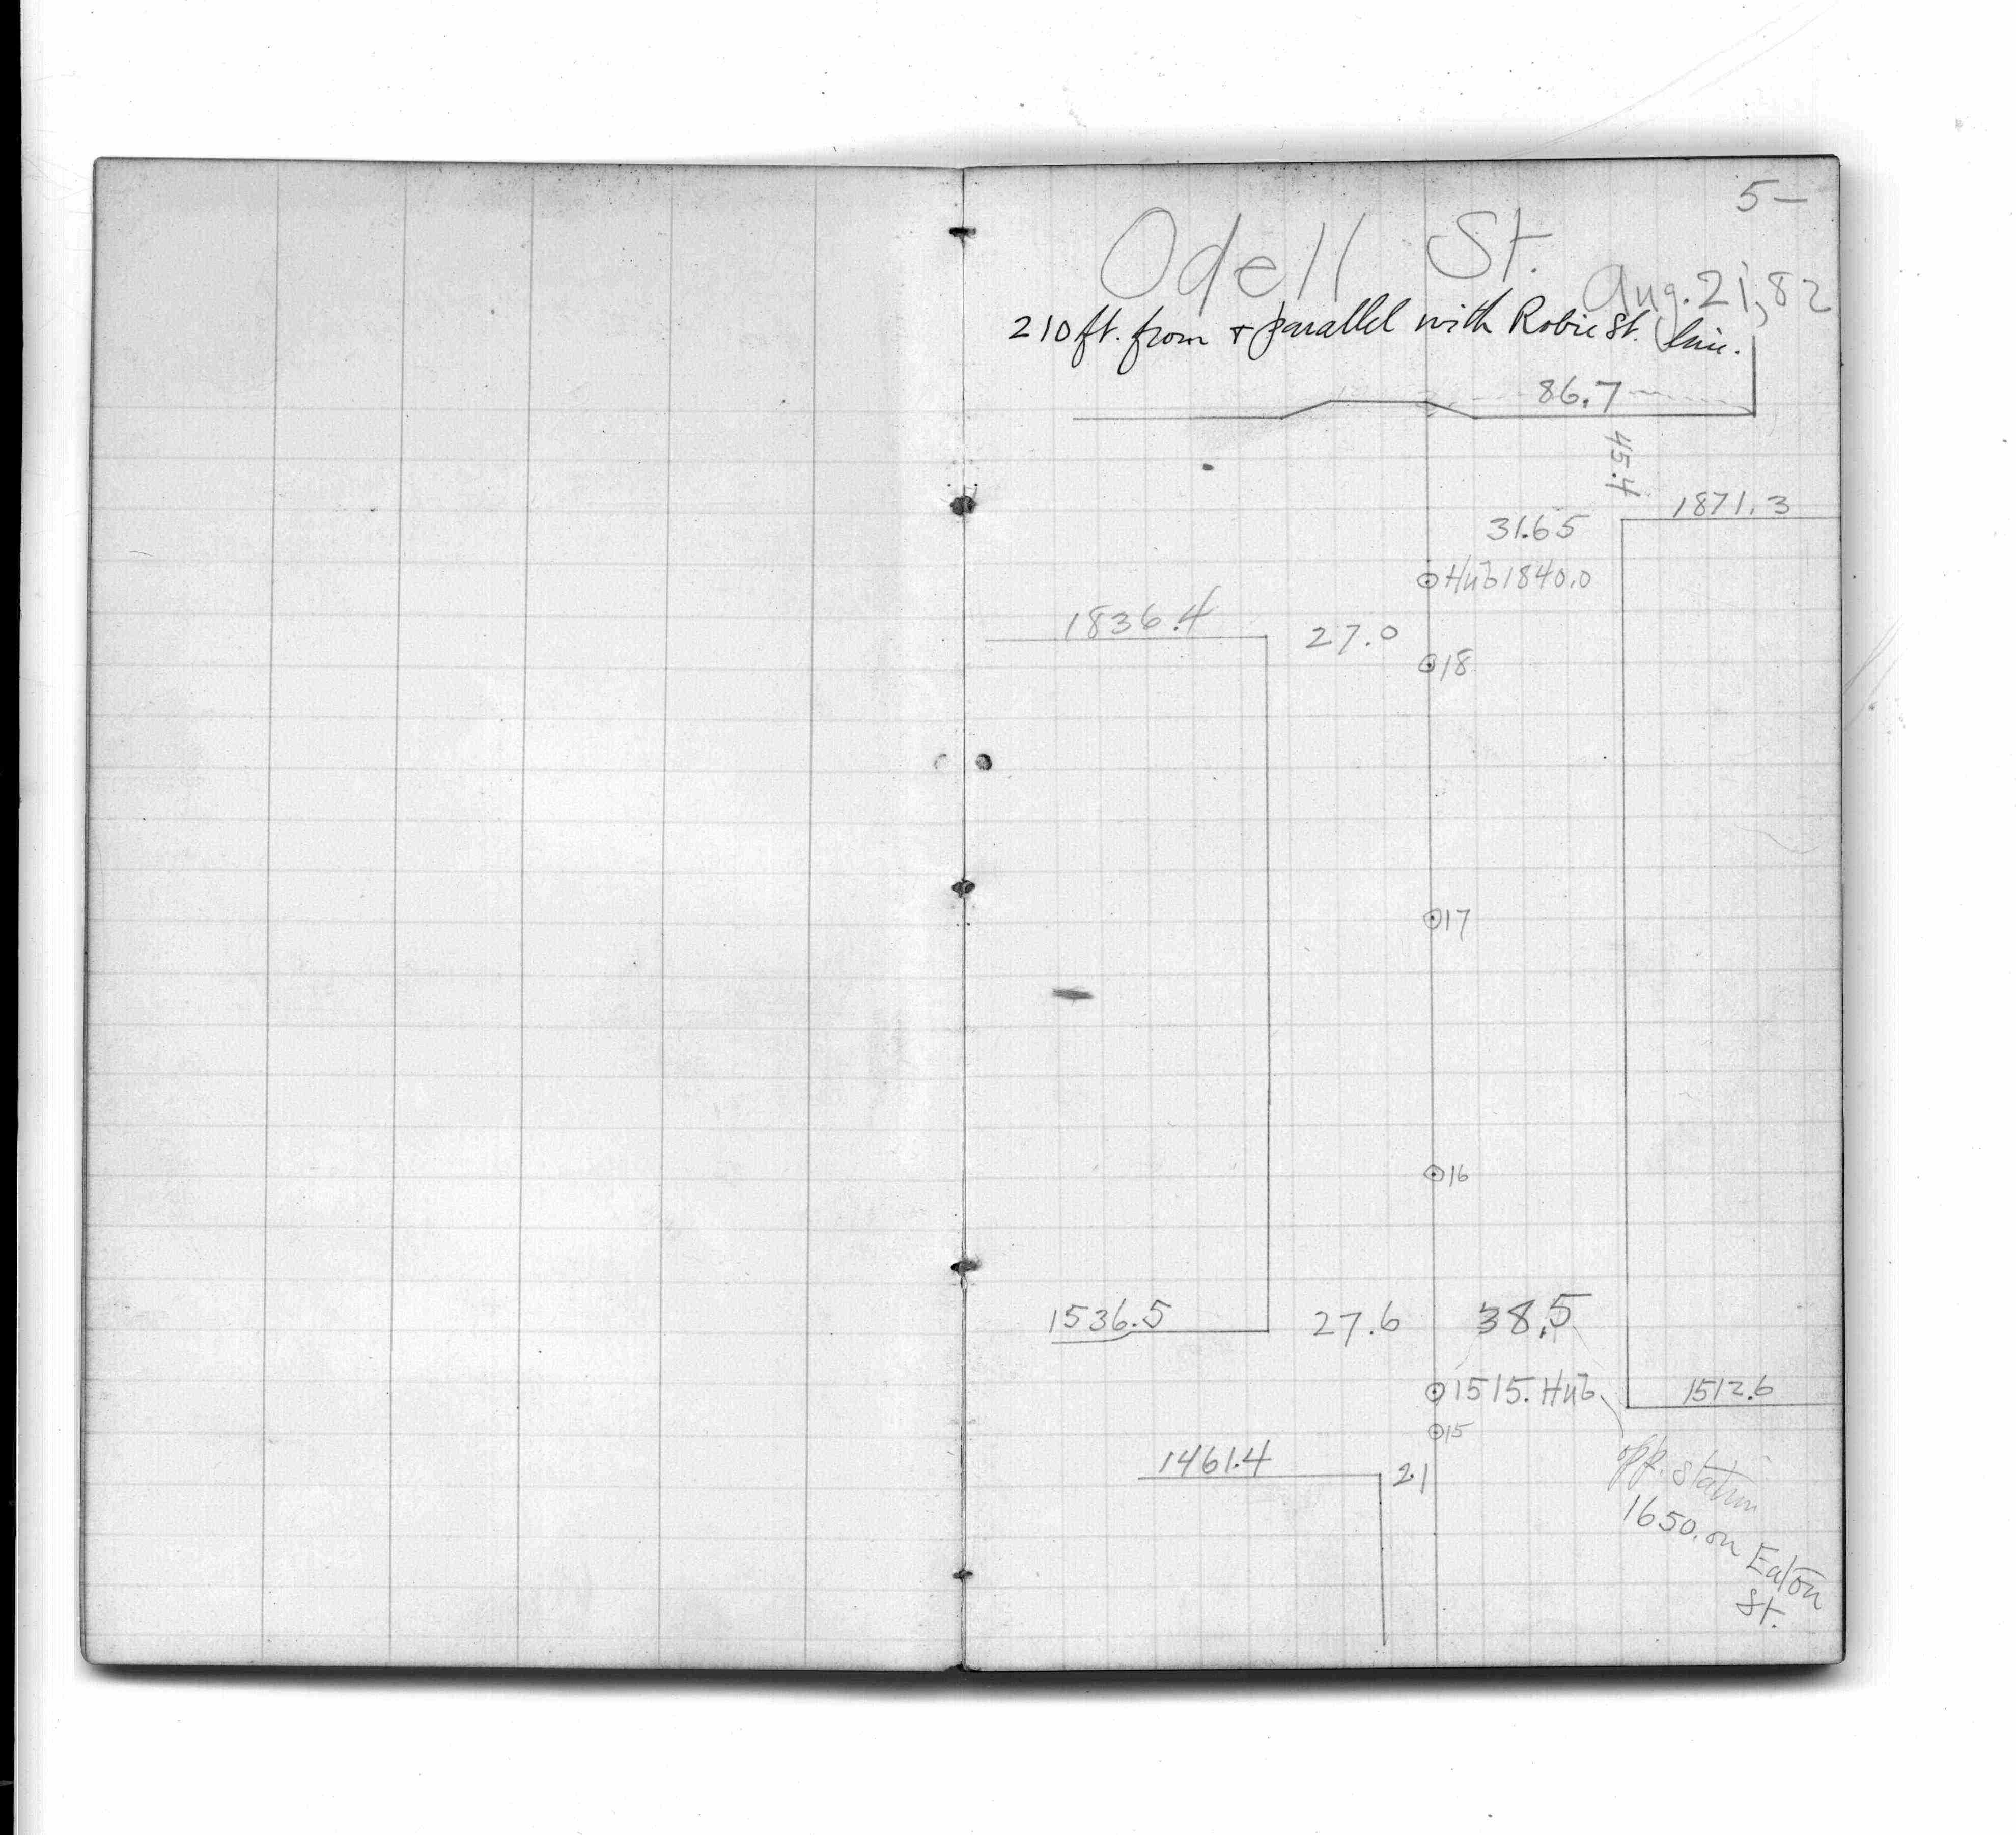 5-
Odell St.
Aug. 21, 82
210 ft. from & parallel with Robie St. line.
86.7
45.4
1871.3
31.65
Hub 1840.0
1836.4
27.0
18
17
16
1536.5
27.6
38.5
1515. Hub
1512.6
15
1461.4
2.1
opp. station
1650. on Eaton
St.